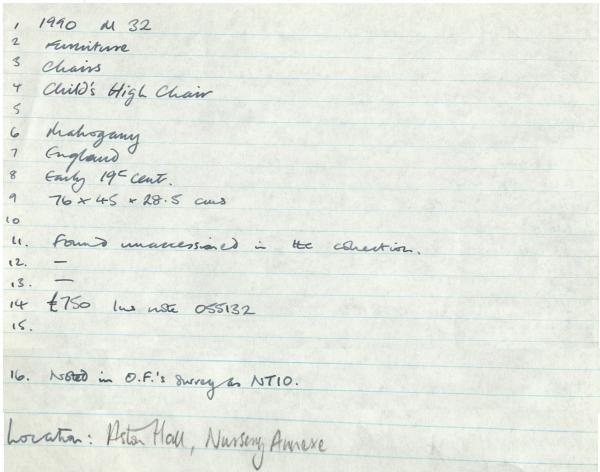 1 1990 M 32
2 Furniture
3 Chairs
4 Child's High Chair
5
6 Mahogany
7 England
8 Early 19C cent.
9 76 x 45 x 28.5 cms
10
11. Found unaccessioned in the collection.
12. —
13. —
14 £750 Ins note 055132
15.
16. Noted in O.F.'s survey as NT10.
Location: Aston Hall, Nursery Annexe